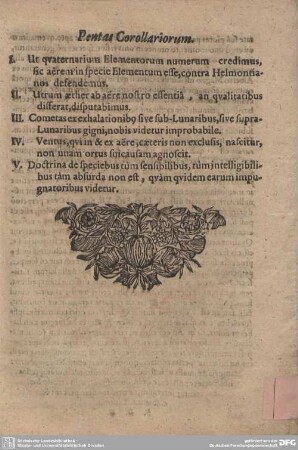 Pentas Corollariorum.
I. Ut qvaternarium Elementorum numerum credimus,
sic aërem in specie Elementum esse, contra Helmontia-
nos defendemus.
II. Utrum æther ab aëre nostro essentiâ, an qvalitatibus
differat, disputabimus.
III. Cometas ex exhalationibq sive sub-Lunaribus, sive supra-
Lunaribus gigni, nobis videtur improbabile.
IV. Ventus, qvi in & ex aëre, cæteris non exclusis, nascitur,
non unam ortus sui causam agnoscit.
V. Doctrina de speciebus tùm sensibilibus, tùm intelligibili-
bus tàm absurda non est, qvàm qvidem earum impu-
gnatoribus videtur.